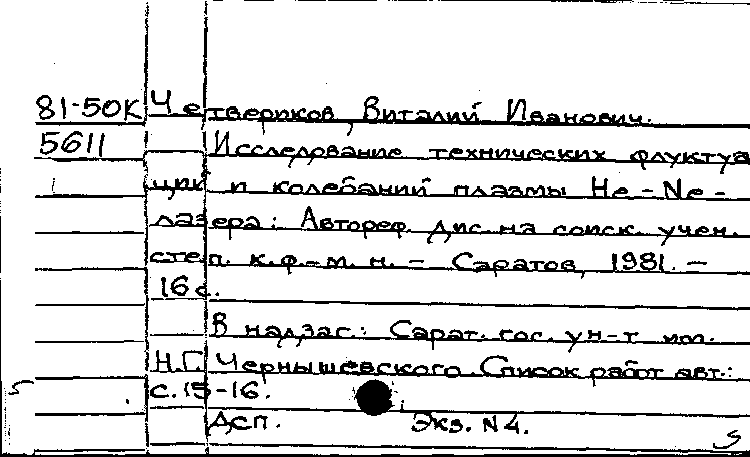 81-50К Четвериков, Виталий Иванович.
5611 Исследование технических флуктуа
ций и колебаний плазмы He-Ne-
лазера: Автореф. дис. на соиск. учен.
степ. к.ф.-м.н. - Саратов, 1981. -
16 с.
В надзаг.: Сарат. гос. ун-т им.
Н.Г. Чернышевского. Список работ авт.:
с. 15-16.
Дсп. Экз. N4.